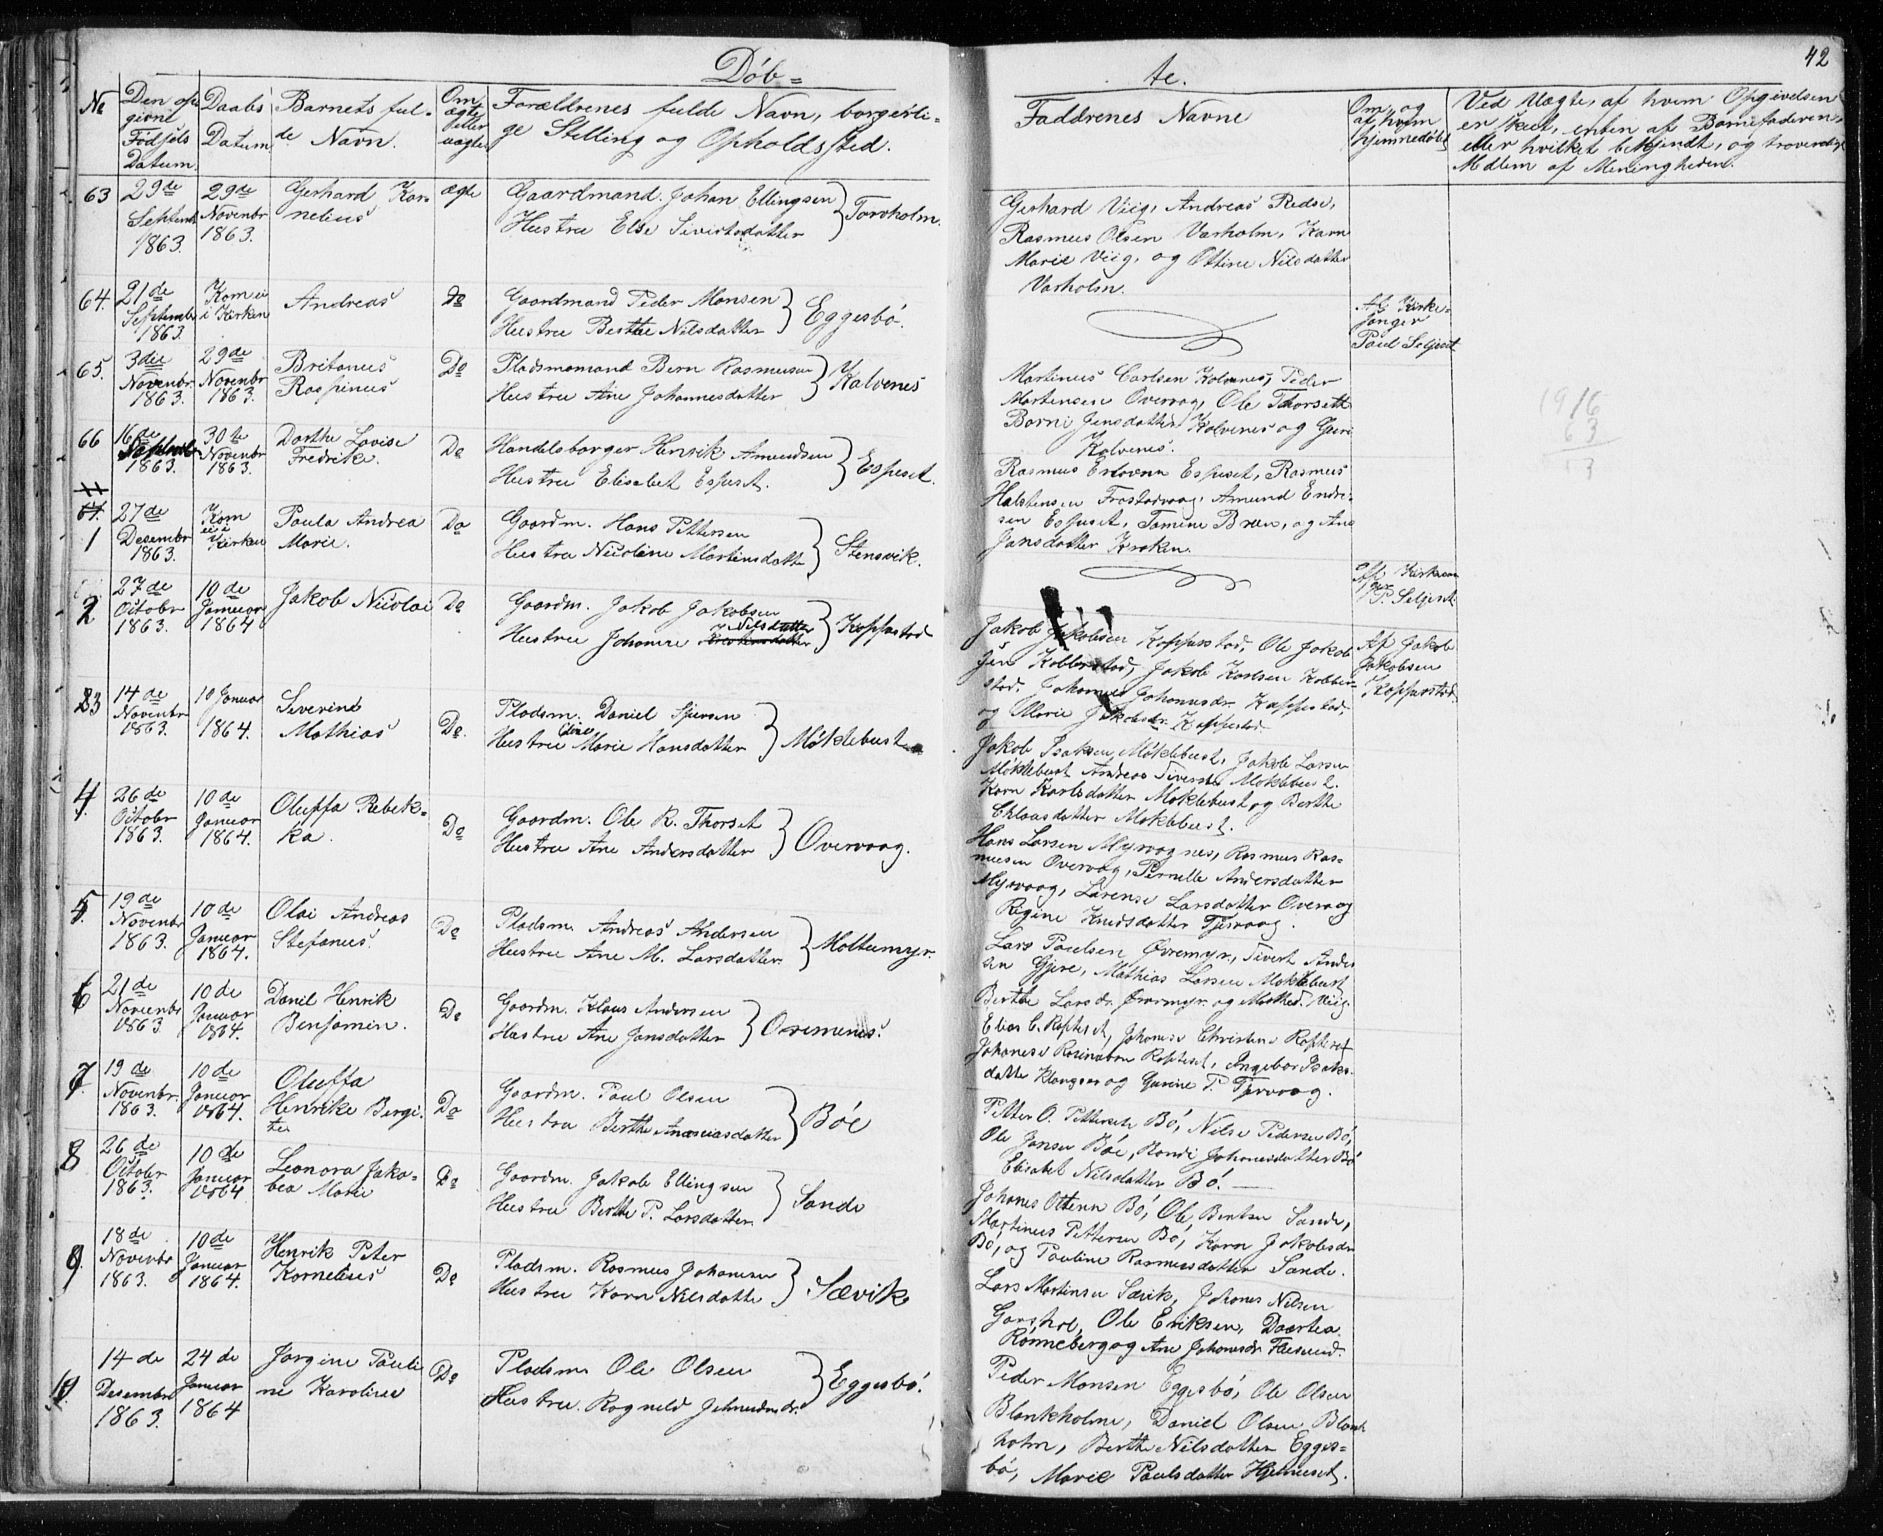 Döb=
te.
42
No
Den op
givne
Fødsels
Datum.
Daabs
Datum.
Barnets ful-
de Navn.
Om
ægte
eller
uægte
Forældrenes fulde Navn, borgerli-
ge Stilling og Opholdssted.
Faddrenes Navne
Om, og
af hvem
hjemmedøbt
Ved Uægte, af hvem Opgivelsen
er skeet, enten af Barnefaderen,
eller hvilket bekjendt, og troværdigt
Medlem af Menigheden.
63
29de
Septembr
1863.
29de
Novembr
1863.
Gerhard Kor
nelius
ægte
Gaardmand Johan Ellingsen
Hustru Else Sivertsdatter
Torvholm.
Gerhard Viig, Andreas Redse,
Rasmus Olsen Varholm, Karn
Marie Viig, og Ottine Nilsdatter
Varholm.
64.
21de
Septembr
1863.
Kom ei
i Kirken
Andreas
Do
Gaardmand Peder Monsen
Hustru Berthe Nilsdatter
Eggesbö.
Af Kirke=
sanger
Paul Seljeset
65.
3die
Novembr
1863.
29de
Novembr
1863.
Britanus
Raspinus
Do
Pladsmomand Bern Rasmusen
Hustru Ane Johannesdatter
Kalvenes
Martinus Carlsen Kolvenes, Peder
Mortensen Overvog, Ole Thorseth
Borni Jensdatter Kolvenes og Guri
Kolvenes.
66
16de
1863.
30te
Novembr
1863.
Dorthe Lovise
Fredrik.
Do
Handelsborger Henrik Amundsen
Hustru Elisabet Espeset.
Espeset.
Rasmus Espeset, Rasmus
Halstensen Frostadvog, Amund Endre-
sen Espeset, Tomine Bruun, og Ane
Jansdatter Kroken.
67.
1
27de
Desembr
1863.
Kom
ei i
Kirken
Paula Andrea
Marie.
Do
Gaardm. Hans Pettersen
Hustru Nicoline Martinsdatte
Stensvik.
Af Kirkesan
ger P. Seljeset
2
27de
Octobr
1863.
10de
Januar
1864
Jakob Nicolai
Do
Gaardm. Jakob Jakobsen
Nilsdatter
Hustru Johanne
Koppestad
Jakob Jakobsen Kopperstad, Ole Jakob
sen Kobberstad, Jakob Karlsen Kobber=
stad, Johannes Johannsdr. Koppestad,
og Marie Jakobsdr. Koppestad
Af Jakob
Jakobsen
Kopperstad.
3
14de
Novembr
1863.
10 Januar
1864.
Severine
Mathias
Do.
Pladsm. Daniel Iversen
Hustru Marie Hansdatter
Möklebust
Jakob Isaksen Möklebust, Jakob Larsen
Möklebust Andreas Siversen Moklebust.
Karn Karlsdatter Moklebust og Berthe
Chlausdatter Moklebust.
4.
26de
Octobr
1863.
10de
Januar
1864.
Oluffa Rebek=
ka.
Do
Gaardm. Ole R. Thorset
Hustru Ane Andersdatter
Overvaag.
Hans Larsen Myrvognes, Rasmus Ras=
musen Overvog, Pernelle Andersdatter
Myrvaag, Larense Larsdatter Overvog
Régine Knudsdatter Tjervaag.
5.
19de
Novembr
1863.
10de
Januar
1864.
Olai Andreas
Stefanus.
Do
Pladsm. Andreas Andersen
Hustru Ane M. Larsdatter.
Moltumyr.
Lars Paulsen Övremyr, Sivert Ander
sen Gjere, Mathias Larsen Moklebust
Berthe Larsdr. Övremyr og Mathed. Viig
6
21de
Novembr
1863
10de
Januar
1864.
Daniel Henrik
Benjamin.
Do
Gaardm. Klaus Andersen
Hustru Ane Jansdatter
Osremenes.
Elias C. Ropteset, Johanes Christens Ropteset
Johanese Rasmusen Ropteset, Ingebor Isaks-
datter Klungnes og Gurine P. Tjervaag.
7.
19de
Novembr.
1863.
10de
Januar
1864.
Oluffa
Henrikke Bergi.
the
Do
Gaardm. Paul Olsen
Hustru Berthe Ananiasdatter
Böe
Petter O. Pettersen Bö, Nilse Pedersen Bö,
Ole Jansen Böe, Randi Johanesdatter Bö
Elisabet Nilsdatter Bö.
8
26de
Octobr
1863.
10de
Januar
1864
Leonora Jako=
bea Marie
Do
Gaardm. Jakob Ellingsen
Hustru Berthe P. Larsdatter
Sande
Johanes Ottesen Bö, Ole Bentsen Sande,
Martinus Pettersen Bö, Karn Jakobsdr
Bö, og Pauline Rasmusdatter Sande.
9.
18de
Novembr
1863.
10de
Januar
1864.
Henrik Peter
Kornelius
Do
Pladsm. Rasmus Johansen
Hustru Karn Nilsdatte
Sævik
Lars Martinsen Sævik, Johanes Nilsen
Garshol, Ole Eriksen, Daartea
Rönneberg og Ane Johansdr. Flusund.
10.
14de
Desembr
1863.
24de
Januar
1864
Jorgine Pauli
ne Karoline
Do
Pladsm. Ole Olsen
Hustru. Rognild Johnsdr.
Eggesbö.
Peder Monsen Eggesbö, Ole Olsen
Blankholm, Daniel Olsen Blank
holm, Berthe Nilsdatter Egges=
bö, Marie Paulsdatter Hjelmeset.
1916
63
53